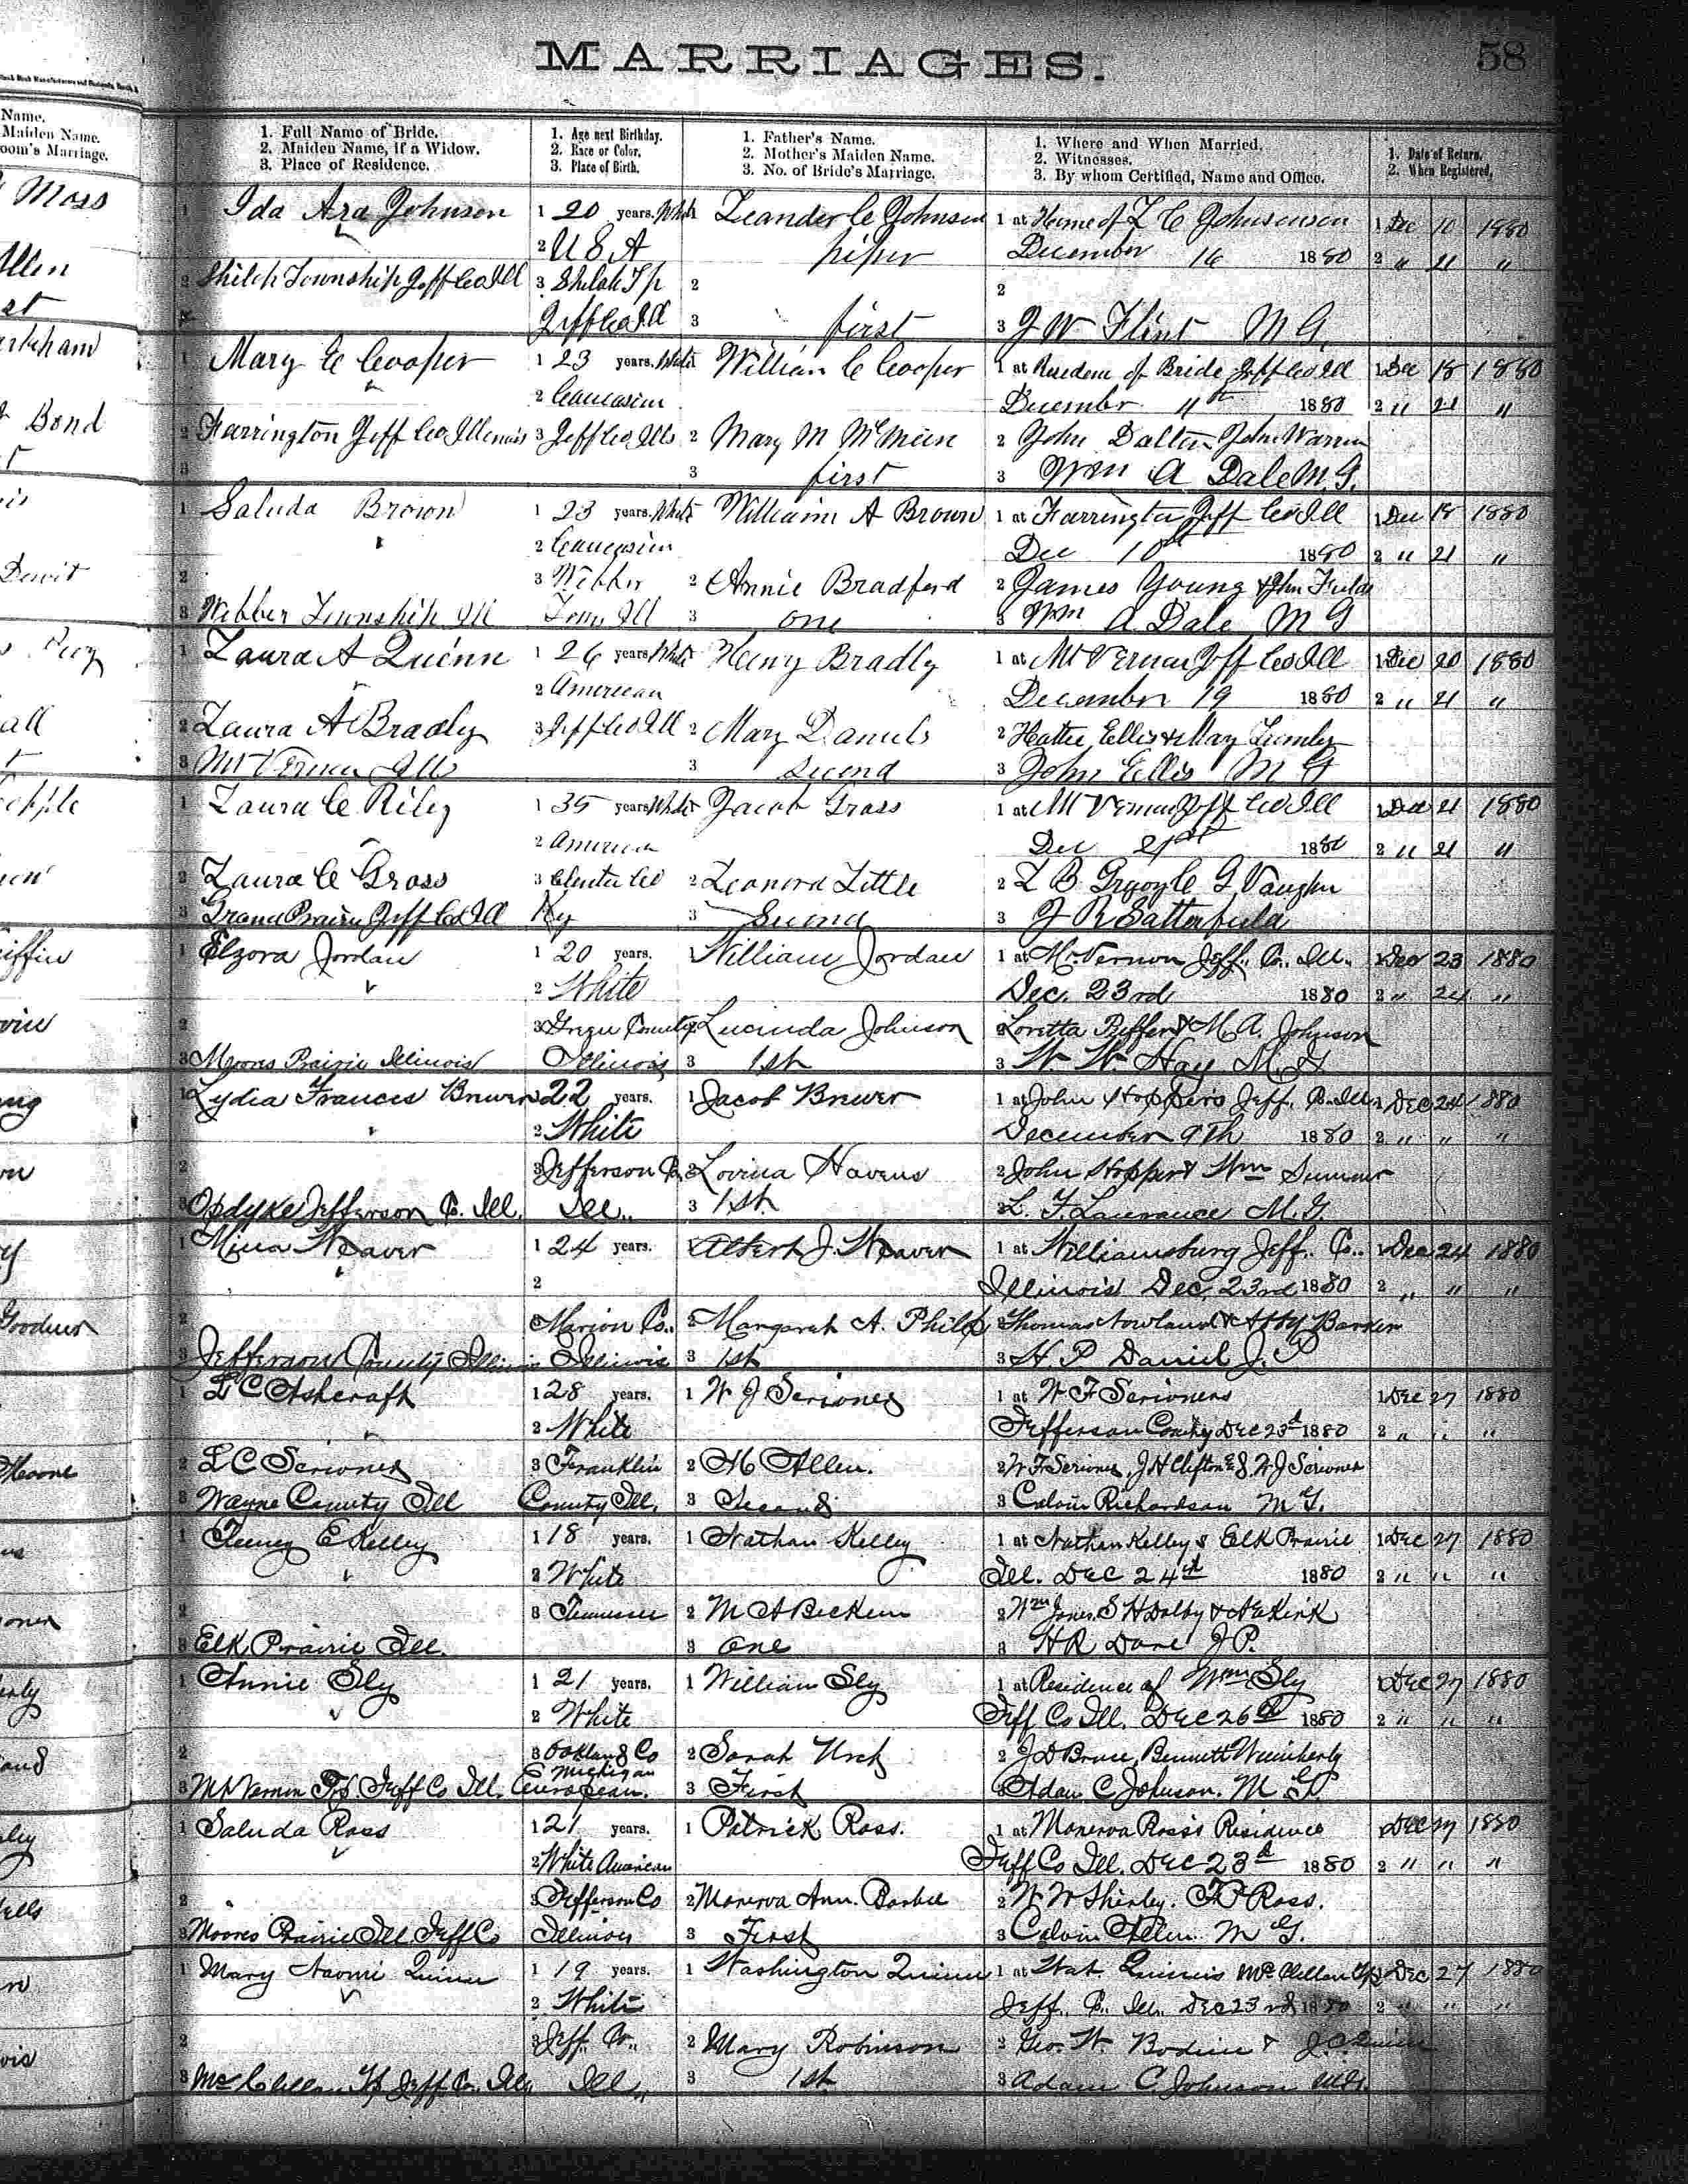 MARRIAGES.
58
Name.
Maiden Name.
oom's Marriage.
1. Full Name of Bride.
2. Maiden Name, if a Widow.
3. Place of Residence.
1. Age next Birthday.
2. Race or Color.
3. Place of Birth.
1. Father's Name.
2. Mother's Maiden Name.
3. No. of Bride's Marriage.
1. Where and When Married.
2. Witnesses.
3. By whom Certified, Name and Office.
1. Date of Return.
2. When Registered.
Moss
1 Ida Ara Johnson 1 20 years. White Leander C Johnson 1 at Home of L C Johnsenson 1 Dec 10 1880
2 U S A piper December 16 1880 2 " 21 "
2 Shiloh Township Jeff Co Ill 3 Shiloh Tp 2 2
Jeff Co Ill 3 first 3 J W Flint M G.
1 Mary E Cooper 1 23 years. White William C Cooper 1 at Residence of Bride Jeff Co Ill 1 Dec 18 1880
2 Caucasian December 11th 1880 2 " 21 "
Bond
2 Farrington Jeff Co Illinois 3 Jeff Co Ills 2 Mary M 2 John Dalton John Warren
3 3 first 3 Wm A Dale M. G.
1 Saluda Brown 1 23 years. White William A Brown 1 at Farrington Jeff Co Ill 1 Dec 18 1880
2 Caucasian Dec 10th 1880 2 " 21 "
2 3 Webber 2 Annie Bradford 2 James Young & John Fields
3 Webber Township Ill Town Ill 3 one 3 Wm A. Dale M G
1 Laura A Quinn 1 26 years White Henry Bradly 1 at Mt Vernon Jeff Co Ill 1 Dec 20 1880
2 American December 19 1880 2 " 21 "
2 Laura A Bradly 3 Jeff Co Ill 2 Mary Daniels 2 Hattie Ellis & May
3 Mt Vernon Ills 3 Second 3 John Ellis M G
1 Laura C Riley 1 35 years White Jacob Gross 1 at Mt Vernon Jeff Co Ill 1 Dec 21 1880
2 American Dec 21st 1880 2 " 21 "
2 Laura C Gross 3 Co 2 Leonora Little 2 L B G Vaughn
3 Grand Prairie Jeff Co Ill Ky 3 Second 3 J R Satterfield
1 Elzora Jordan 1 20 years. William Jordan 1 at Mt. Vernon Jeff. Co. Ill. 1 Dec 23 1880
2 White Dec. 23rd 1880 2 " 24 "
2 3 County 2 Lucinda Johnson 2 Loretta & M. A. Johnson
3 Moores Prairie Illinois Illinois 3 1st 3 W. W. Hay M. G
1 Lydia Frances Brewer 1 22 years. 1 Jacob Brewer 1 at John Hopper's Jeff. Co. Ill. 1 Dec 24 1880
2 White December 9th 1880 2 " " "
2 3 Jefferson Co. 2 Lovina Havens 2 John Hopper & Wm Summer
3 Opdyke Jefferson Co. Ill. Ill. 3 1st 3 L. F. Laurance M. G.
1 Mina Weaver 1 24 years. 1 Albert J. Weaver 1 at Williamsburg Jeff. Co. 1 Dec 24 1880
2 Illinois Dec. 23rd 1880 2 " " "
2 3 Marion Co. 2 Margaret A. Philip 2 Thomas Nowland & Barker
3 Jefferson County Illinois Illinois 3 1st 3 H. P Daniel J. P
1 L C Ashcraft 1 28 years. 1 W J Scrivner 1 at W F Scrivners 1 Dec 27 1880
2 White Jefferson County Dec 23d 1880 2 " " "
2 L C Scrivner 3 Franklin 2 M Allen. 2 W F Scrivner, J H Clifton & W J Scrivner
3 Wayne County Ill County Ill. 3 Second 3 Calvin Richardson M G.
1 E Kelley 1 18 years. 1 Nathan Kelley 1 at Nathan Kelleys Elk Prairie 1 Dec 27 1880
2 White Ill. Dec 24th 1880 2 " " "
2 3 Tennessee 2 M A 2 Wm Jones, S H Dolby & Kirk
3 Elk Prairie Ill. 3 One 3 H R Dare J P.
1 Annie Sly 1 21 years. 1 William Sly 1 at Residence of Wm Sly 1 Dec 27 1880
2 White Jeff Co Ill. Dec 26th 1880 2 " " "
2 3 Oakland Co 2 Sarah 2 J D Bruce, Bennett Wimberly
Michigan
3 Mt Vernon Tp. Jeff Co Ill. European. 3 First 3 Adam C Johnson. M G
1 Saluda Ross 1 21 years. 1 Patrick Ross. 1 at Manerva Ross's Residence Dec 27 1880
2 White American Jeff Co Ill. Dec 23d 1880 2 " " "
2 3 Jefferson Co 2 Manerva Ann. Barbee 2 W W Shirley. Ross.
3 Moores Prairie Ill. Jeff Co Illinois 3 First 3 Calvin Allen M G.
1 Mary Naomi Quinn 1 19 years. 1 Washington Quinn 1 at Wat. Quinn's McClellan Tp Dec 27 1880
2 White Jeff. Co. Ill. Dec 23rd 1880 2 " " "
2 3 Jeff. Co. 2 Mary Robinson 2 Geo. W. Bodine & J. C. Quinn
3 McClellan Tp Jeff Co. Ill Ill. 3 1st 3 Adam C. Johnson M G.